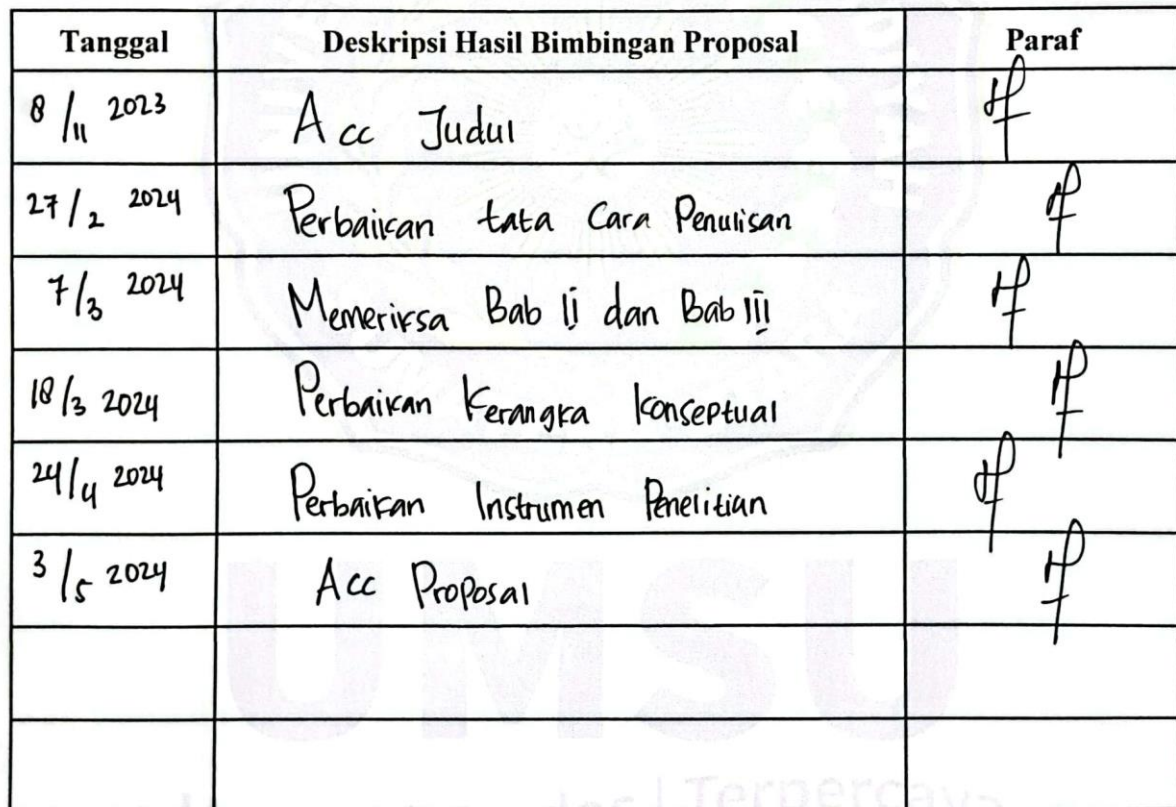 Tanggal Deskripsi Hasil Bimbingan Proposal Paraf
8/11 2023 Acc Judul
27/2 2024 Perbaikan tata Cara Penulisan
7/3 2024 Memeriksa Bab II dan Bab III
18/3 2024 Perbaikan Kerangka Konseptual
24/4 2024 Perbaikan Instrumen Penelitian
3/5 2024 Acc Proposal
UMSU
Terpercaya